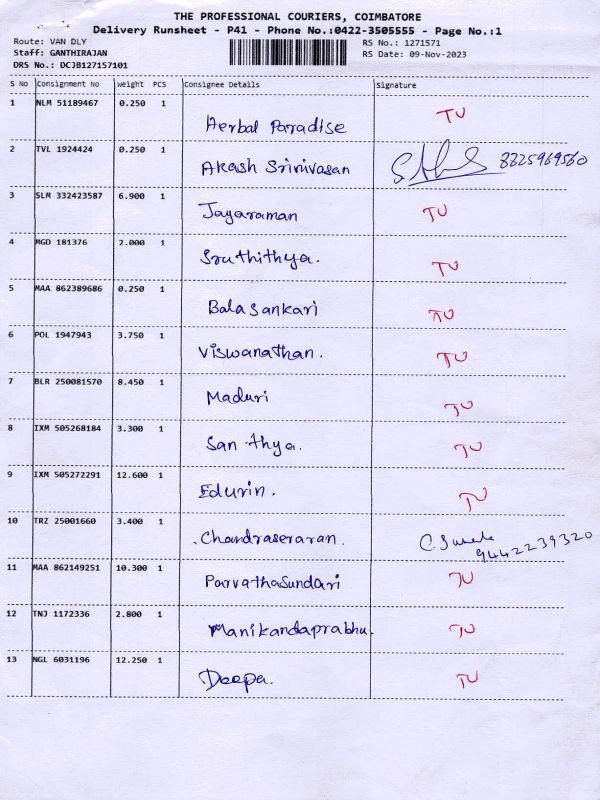 THE PROFESSIONAL COURIERS, COIMBATORE
Delivery Runsheet - P41 - Phone No.:0422-3505555 - Page No.:1
Route: VAN DLY RS No.: 1271571
Staff: GANTHIRAJAN RS Date: 09-Nov-2023
DRS No.: DCJB127157101
S No Consignment No Weight PCS Consignee Details Signature
1 NLM 51189467 0.250 1 Herbal Paradise TU
2 TVL 1924424 0.250 1 Akash Srinivasan 8825969560
3 SLM 332423587 6.900 1 Jayaraman TU
4 MGD 181376 2.000 1 Sruthithya. TU
5 MAA 862389686 0.250 1 Balasankari TU
6 POL 1947943 3.750 1 Viswanathan. TU
7 BLR 250081570 8.450 1 Maduri TU
8 IXM 505268184 3.300 1 Santhya. TU
9 IXM 505272291 12.600 1 Edurin. TU
10 TRZ 25001660 3.400 1 Chandraseraran. 9442239320
11 MAA 862149251 10.300 1 ParvathaSundari TU
12 TNJ 1172336 2.800 1 Manikandaprabhu. TU
13 NGL 6031196 12.250 1 Deepa. TU